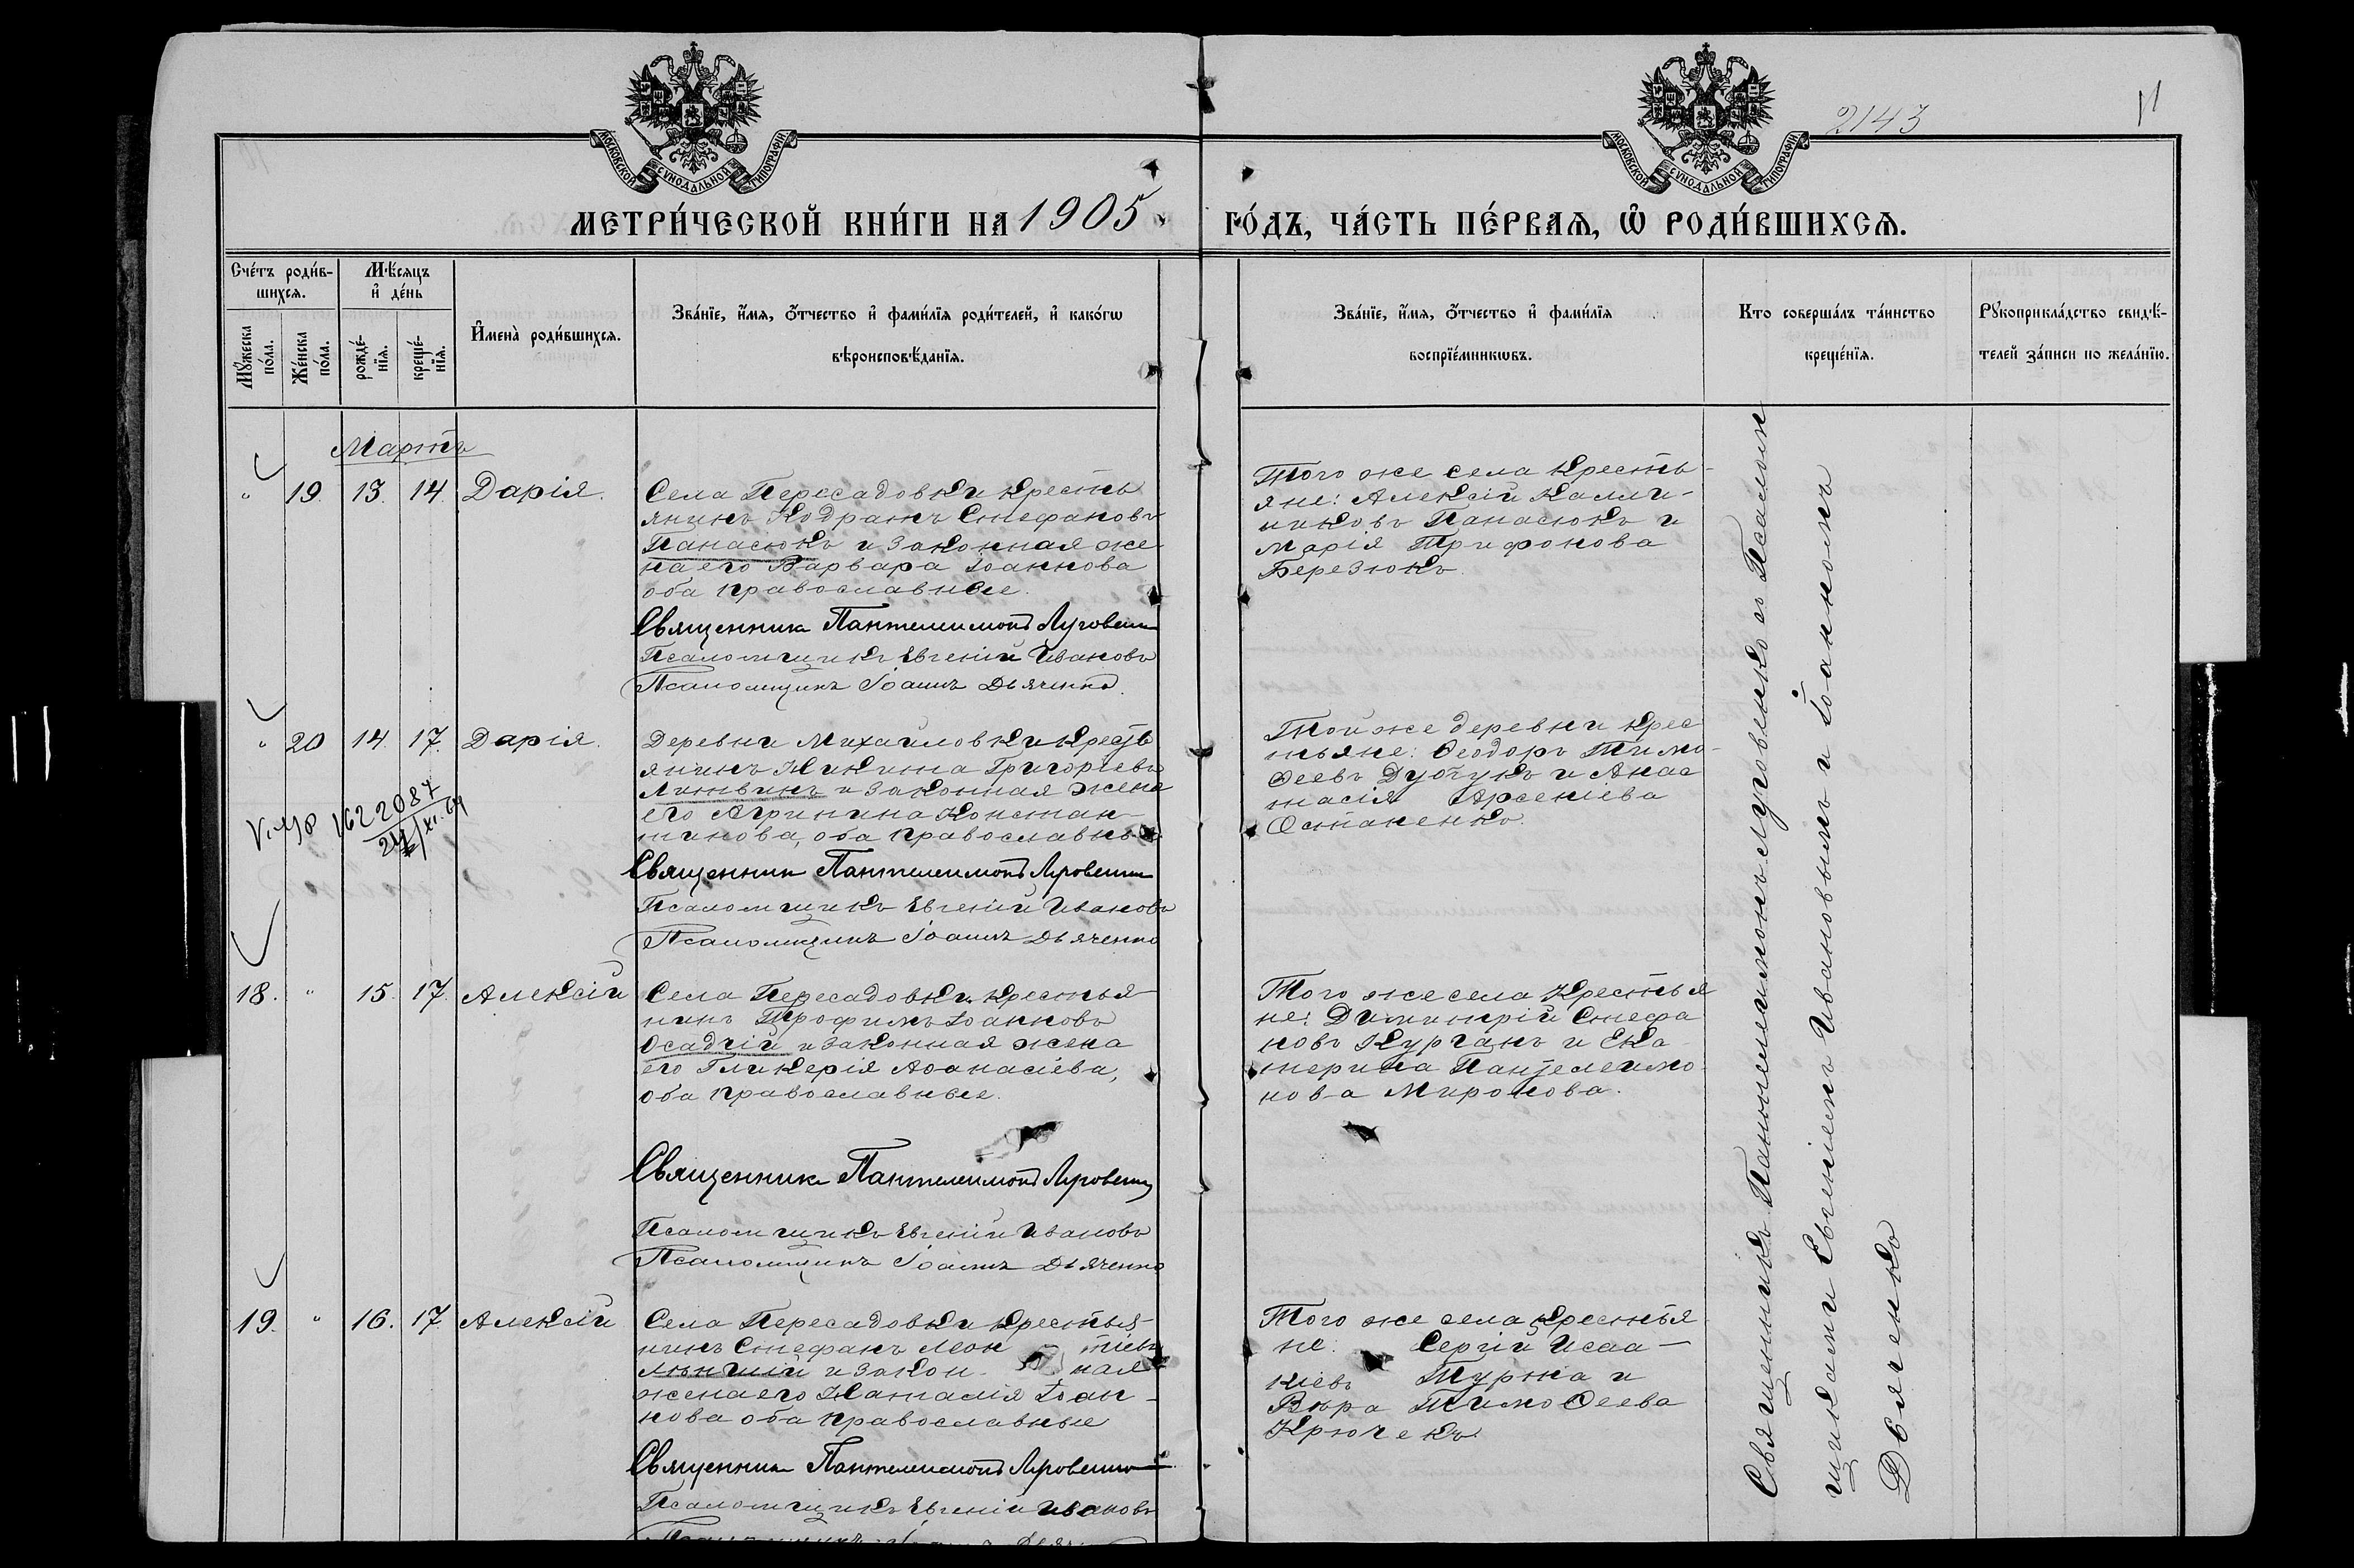 2143
11
МОСКОВСКОЙ СУНОДАЛЬНОЙ ТИПОГРАФІИ
МОСКОВСКОЙ СУНОДАЛЬНОЙ ТИПОГРАФІИ
МЕТРИ́ЧЕСКОЙ КНИ́ГИ НА 1905 ГО́ДЪ, ЧА́СТЬ ПЕ́РВАѦ, Ѡ҆ РОДИ́ВШИХСѦ.
Сче́тъ роди́в-
шихсѧ.
Мꙋ́жеска
по́ла.
Же́нска
по́ла.
Мѣ́сѧцъ
и҆ де́нь
рожде́-
нїѧ.
креще́-
нїѧ.
И҆мена̀ роди́вшихсѧ.
Зва́нїе, и҆́мѧ, ѻ҆́тчество и҆ фами́лїѧ роди́телей, и҆ како́гѡ
вѣроисповѣ́данїѧ.
Зва́нїе, и҆́мѧ, ѻ҆́тчество и҆ фами́лїѧ
воспрїе́мникѡвъ.
Кто соверша́лъ та́инство
креще́нїѧ.
Рꙋкоприкла́дство свидѣ́-
телей за́писи по жела́нїю.
Мартъ
" 19. 13. 14. Дарія.
Села Пересадовки кресть
янинъ Кодратъ Стефановъ
Панасюкъ и законная же
на его Варвара Іоаннова
оба православные.
Священникъ Пантелеимонъ Луговенко
Псаломщикъ Евгеній Ивановъ
Псаломщикъ Іоаннъ Дьяченко.
Того же села кресть-
яне: Алексій Калли-
никовъ Панасюкъ и
Марія Трифонова
Березюкъ.
" 20 14. 17. Дарія.
Деревни Михайловки кресть
янинъ Никита Григорьевъ
Литвинъ и законная жена
его Агрипина Констан-
тинова, оба православные.
Священникъ Пантелеимонъ Луговенко
Псаломщикъ Евгеній Ивановъ
Псаломщикъ Іоаннъ Дьяченко
Той же деревни крес
тьяне: Ѳеодоръ Тимо-
ѳеевъ Дубчукъ и Анас
тасія Арсеніева
Остапенко.
1622087
24/XI.64
18. " 15. 17. Алексій
Села Пересадовки крестья-
нинъ Трофимъ Іоанновъ
Осадчій и законная жена
его Гликерія Аѳанасіева,
оба православные.
Священникъ Пантелеимонъ Луговенко
Псаломщикъ Евгеній Ивановъ
Псаломщикъ Іоаннъ Дьяченко
Того же села крестья
не: Димитрій Стефа
новъ Курганъ и Ека
терина Пантелеимо
нова Миронова.
19. " 16. 17. Алексій
Села Пересадовки крестья-
нинъ Стефанъ Леон тіевъ
и закон- ная
жена его Наталія Іоан-
нова оба православные
Священникъ Пантелеимонъ Луговенко
Псаломщикъ Евгеній Ивановъ
Псаломщикъ Іоаннъ Дьяченко
Того же села крестья
не: Сергій Исаа-
кіевъ Турта и
Вѣра Тимоѳеева
Крючекъ.
Священникъ Пантелеимонъ Луговенко съ Псалом
щиками Евгеніемъ Ивановымъ и Іоанномъ
Дьяченко